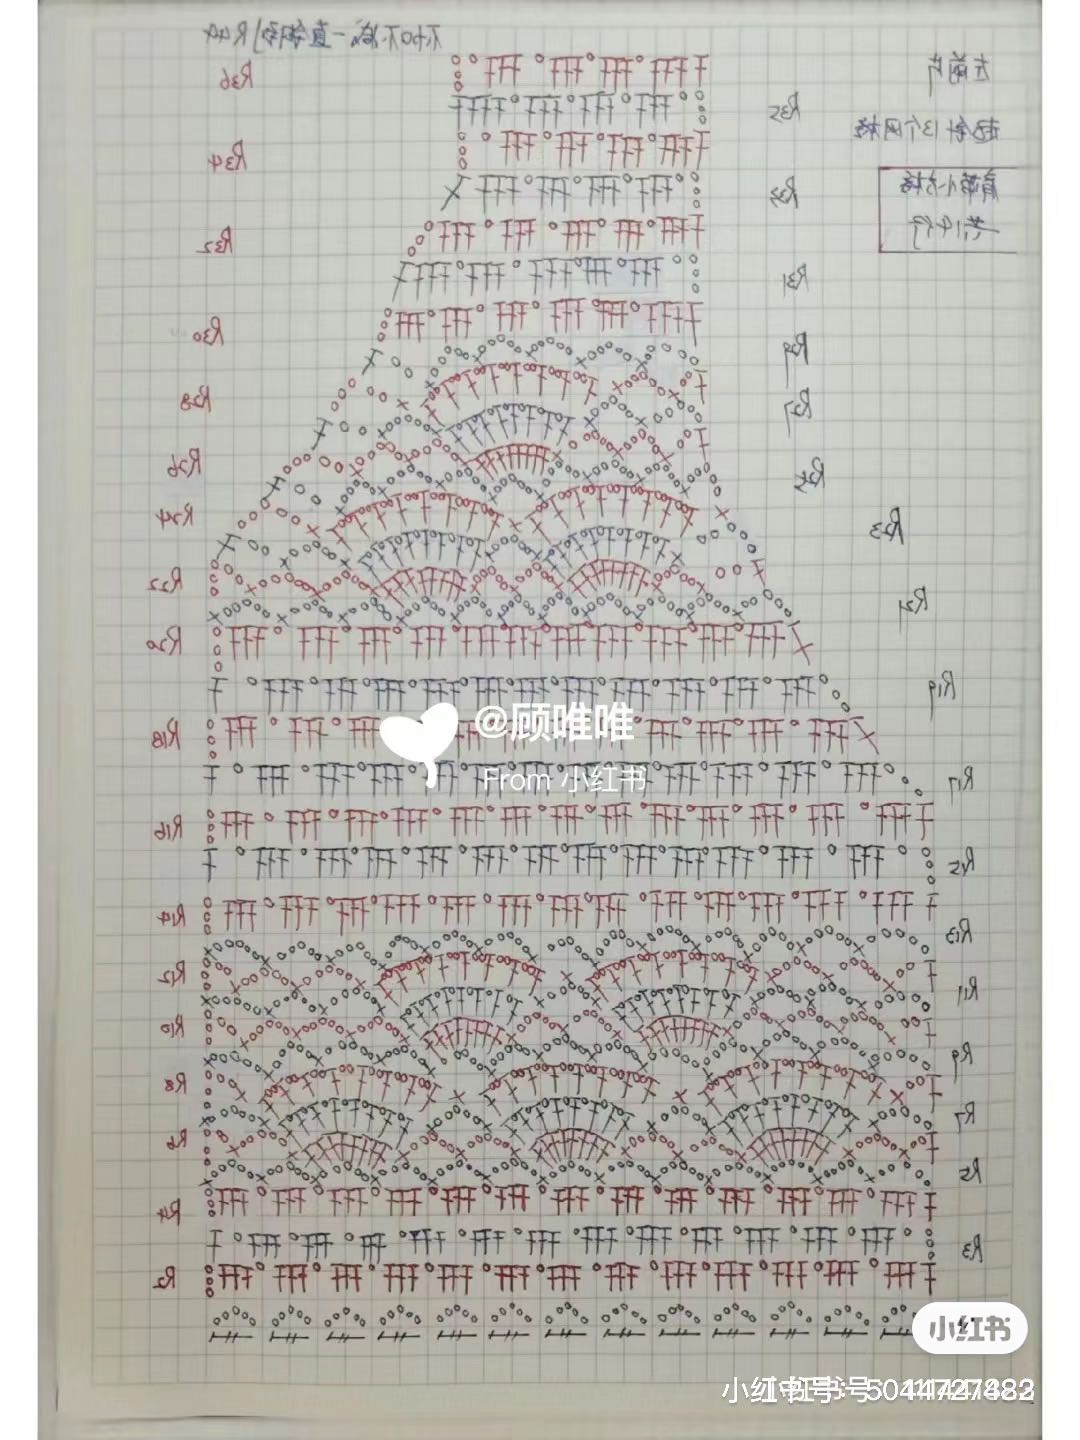 不加不减一直钩到R40
R36
左前片
R35
起针13个网格
R34
R33
肩带小方格
共14行
R32
R31
R30
R29
R28
R27
R26
R25
R24
R23
R22
R21
R20
R19
@顾唯唯
R18
From 小红书
R17
R16
R15
R14
R13
R12
R11
R10
R9
R8
R7
R6
R5
R4
R3
R2
小红书
小红书号：